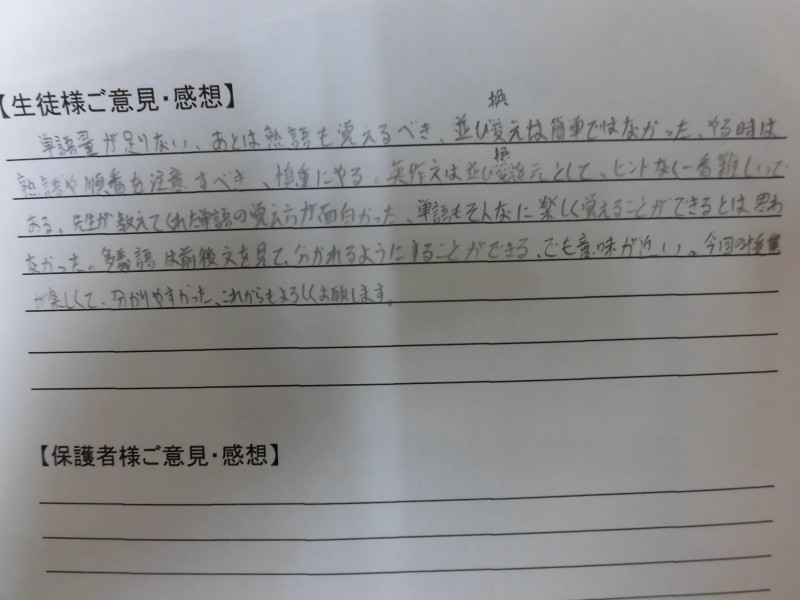 【生徒様ご意見・感想】
換
単語量が足りない、あとは熟語も覚えるべき、並び変えは簡単ではなかった、やる時は
換
熟語や順番を注意すべき、慎重にやる。英作文は並び変えを元として、ヒントなく一番難しいで
ある。先生が教えてくれた単語の覚え方が面白かった、単語もそんなに楽しく覚えることができるとは思わ
なかった。多義語は前後文を見て、分かれるようにすることができる、でも意味が近い。今回の授業
が楽しくて、分かりやすかった、これからもよろしくお願します。
【保護者様ご意見・感想】